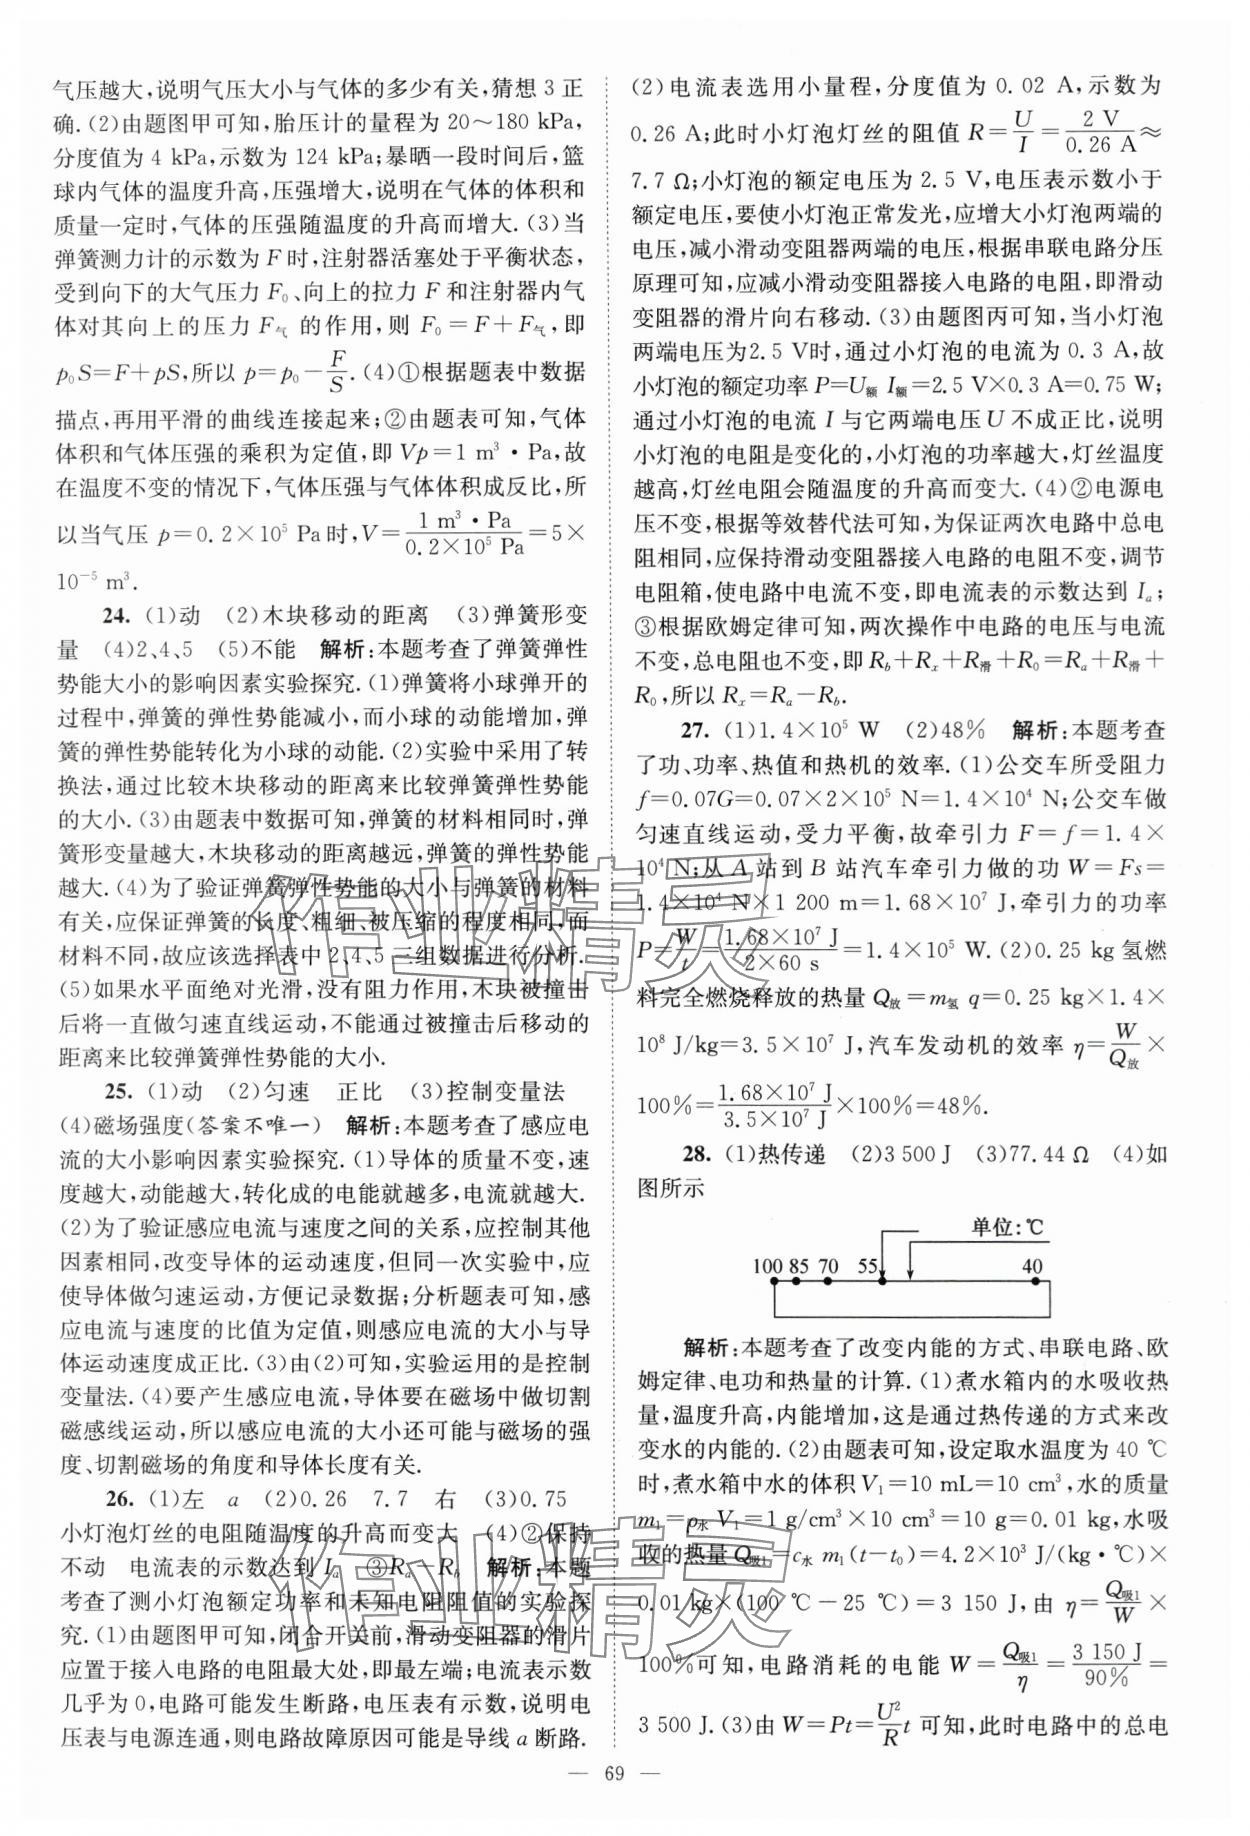 气压越大,说明气压大小与气体的多少有关,猜想 3 正
确.(2)由题图甲可知,胎压计的量程为 20～180 kPa,
分度值为 4 kPa,示数为 124 kPa;暴晒一段时间后,篮
球内气体的温度升高,压强增大,说明在气体的体积和
质量一定时,气体的压强随温度的升高而增大.(3)当
弹簧测力计的示数为 F 时,注射器活塞处于平衡状态,
受到向下的大气压力 F₀、向上的拉力 F 和注射器内气
体对其向上的压力 F气 的作用,则 F₀=F+F气,即
p₀S=F+pS,所以 p=p₀-F/S.(4)①根据题表中数据
描点,再用平滑的曲线连接起来;②由题表可知,气体
体积和气体压强的乘积为定值,即 Vp=1 m³·Pa,故
在温度不变的情况下,气体压强与气体体积成反比,所
以当气压 p=0.2×10⁵ Pa时,V=1 m³·Pa/0.2×10⁵ Pa=5×
10⁻⁵ m³.
24. (1)动 (2)木块移动的距离 (3)弹簧形变
量 (4)2、4、5 (5)不能 解析:本题考查了弹簧弹性
势能大小的影响因素实验探究.(1)弹簧将小球弹开的
过程中,弹簧的弹性势能减小,而小球的动能增加,弹
簧的弹性势能转化为小球的动能.(2)实验中采用了转
换法,通过比较木块移动的距离来比较弹簧弹性势能
的大小.(3)由题表中数据可知,弹簧的材料相同时,弹
簧形变量越大,木块移动的距离越远,弹簧的弹性势能
越大.(4)为了验证弹簧弹性势能的大小与弹簧的材料
有关,应保证弹簧的长度、粗细、被压缩的程度相同,而
材料不同,故应该选择表中 2、4、5 三组数据进行分析.
(5)如果水平面绝对光滑,没有阻力作用,木块被撞击
后将一直做匀速直线运动,不能通过被撞击后移动的
距离来比较弹簧弹性势能的大小.
25. (1)动 (2)匀速 正比 (3)控制变量法
(4)磁场强度(答案不唯一) 解析:本题考查了感应电
流的大小影响因素实验探究.(1)导体的质量不变,速
度越大,动能越大,转化成的电能就越多,电流就越大.
(2)为了验证感应电流与速度之间的关系,应控制其他
因素相同,改变导体的运动速度,但同一次实验中,应
使导体做匀速运动,方便记录数据;分析题表可知,感
应电流与速度的比值为定值,则感应电流的大小与导
体运动速度成正比.(3)由(2)可知,实验运用的是控制
变量法.(4)要产生感应电流,导体要在磁场中做切割
磁感线运动,所以感应电流的大小还可能与磁场的强
度、切割磁场的角度和导体长度有关.
26. (1)左 a (2)0.26 7.7 右 (3)0.75
小灯泡灯丝的电阻随温度的升高而变大 (4)②保持
不动 电流表的示数达到 Iₐ ③Rₐ-R_b 解析:本题
考查了测小灯泡额定功率和未知电阻阻值的实验探
究.(1)由题图甲可知,闭合开关前,滑动变阻器的滑片
应置于接入电路的电阻最大处,即最左端;电流表示数
几乎为 0,电路可能发生断路,电压表有示数,说明电
压表与电源连通,则电路故障原因可能是导线 a 断路.
(2)电流表选用小量程,分度值为 0.02 A,示数为
0.26 A;此时小灯泡灯丝的阻值 R=U/I=2 V/0.26 A≈
7.7 Ω;小灯泡的额定电压为 2.5 V,电压表示数小于
额定电压,要使小灯泡正常发光,应增大小灯泡两端的
电压,减小滑动变阻器两端的电压,根据串联电路分压
原理可知,应减小滑动变阻器接入电路的电阻,即滑动
变阻器的滑片向右移动.(3)由题图丙可知,当小灯泡
两端电压为2.5 V时,通过小灯泡的电流为 0.3 A,故
小灯泡的额定功率 P=U额 I额=2.5 V×0.3 A=0.75 W;
通过小灯泡的电流 I 与它两端电压 U 不成正比,说明
小灯泡的电阻是变化的,小灯泡的功率越大,灯丝温度
越高,灯丝电阻会随温度的升高而变大.(4)②电源电
压不变,根据等效替代法可知,为保证两次电路中总电
阻相同,应保持滑动变阻器接入电路的电阻不变,调节
电阻箱,使电路中电流不变,即电流表的示数达到 Iₐ;
③根据欧姆定律可知,两次操作中电路的电压与电流
不变,总电阻也不变,即 R_b+Rₓ+R滑+R₀=Rₐ+R滑+
R₀,所以 Rₓ=Rₐ-R_b.
27. (1)1.4×10⁵ W (2)48% 解析:本题考查
了功、功率、热值和热机的效率.(1)公交车所受阻力
f=0.07G=0.07×2×10⁵ N=1.4×10⁴ N;公交车做
匀速直线运动,受力平衡,故牵引力 F=f=1.4×
10⁴ N;从 A 站到 B 站汽车牵引力做的功 W=Fs=
1.4×10⁴ N×1 200 m=1.68×10⁷ J,牵引力的功率
P=W/t=1.68×10⁷ J/2×60 s=1.4×10⁵ W.(2)0.25 kg 氢燃
料完全燃烧释放的热量 Q放=m氢 q=0.25 kg×1.4×
10⁸ J/kg=3.5×10⁷ J,汽车发动机的效率 η=W/Q放×
100%=1.68×10⁷ J/3.5×10⁷ J×100%=48%.
28. (1)热传递 (2)3 500 J (3)77.44 Ω (4)如
图所示
单位:℃
100 85 70 55 40
解析:本题考查了改变内能的方式、串联电路、欧
姆定律、电功和热量的计算.(1)煮水箱内的水吸收热
量,温度升高,内能增加,这是通过热传递的方式来改
变水的内能的.(2)由题表可知,设定取水温度为 40 ℃
时,煮水箱中水的体积 V₁=10 mL=10 cm³,水的质量
m₁=ρ水 V₁=1 g/cm³×10 cm³=10 g=0.01 kg,水吸
收的热量 Q吸1=c水 m₁(t-t₀)=4.2×10³ J/(kg·℃)×
0.01 kg×(100 ℃-25 ℃)=3 150 J,由 η=Q吸1/W×
100%可知,电路消耗的电能 W=Q吸1/η=3 150 J/90%=
3 500 J.(3)由 W=Pt=U²/R t 可知,此时电路中的总电
— 69 —
作业精灵
作业精灵